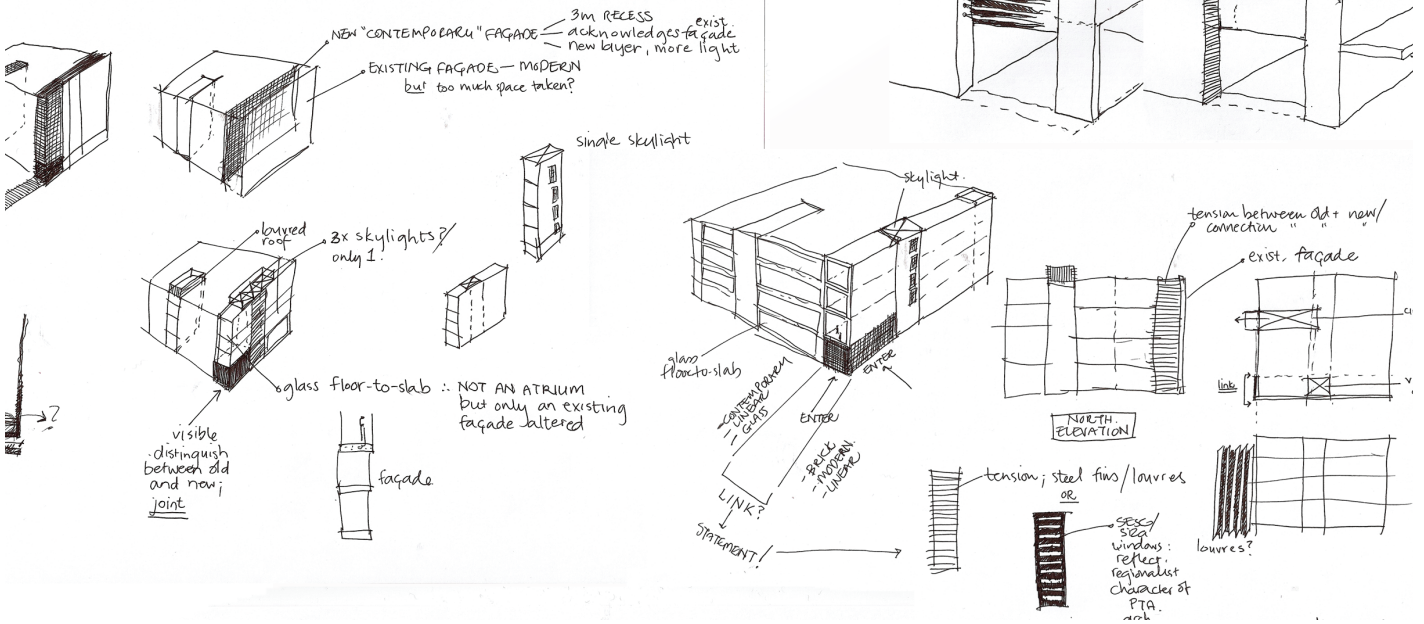 NEW "CONTEMPORARY" FAÇADE
3m RECESS
exist.
acknowledges façade
new layer, more light
EXISTING FAÇADE — MODERN
but too much space taken?
single skylight
louvred
roof
3x skylights?/
only 1.
glass floor-to-slab ∴ NOT AN ATRIUM
but only an existing
façade altered
?
visible
distinguish
between old
and new;
joint
façade
skylight.
glass
floor-to-slab
ENTER
ENTER
- CONTEMPORARY
- LINEAR
- GLASS
- BRICK
- MODERN
- LINEAR
LINK?
STATEMENT!
tension between old + new/
connection " " "
exist. façade
link
NORTH
ELEVATION
tension; steel fins/louvres
OR
louvres?
windows:
reflect.
regionalist
character of
PTA.
arch